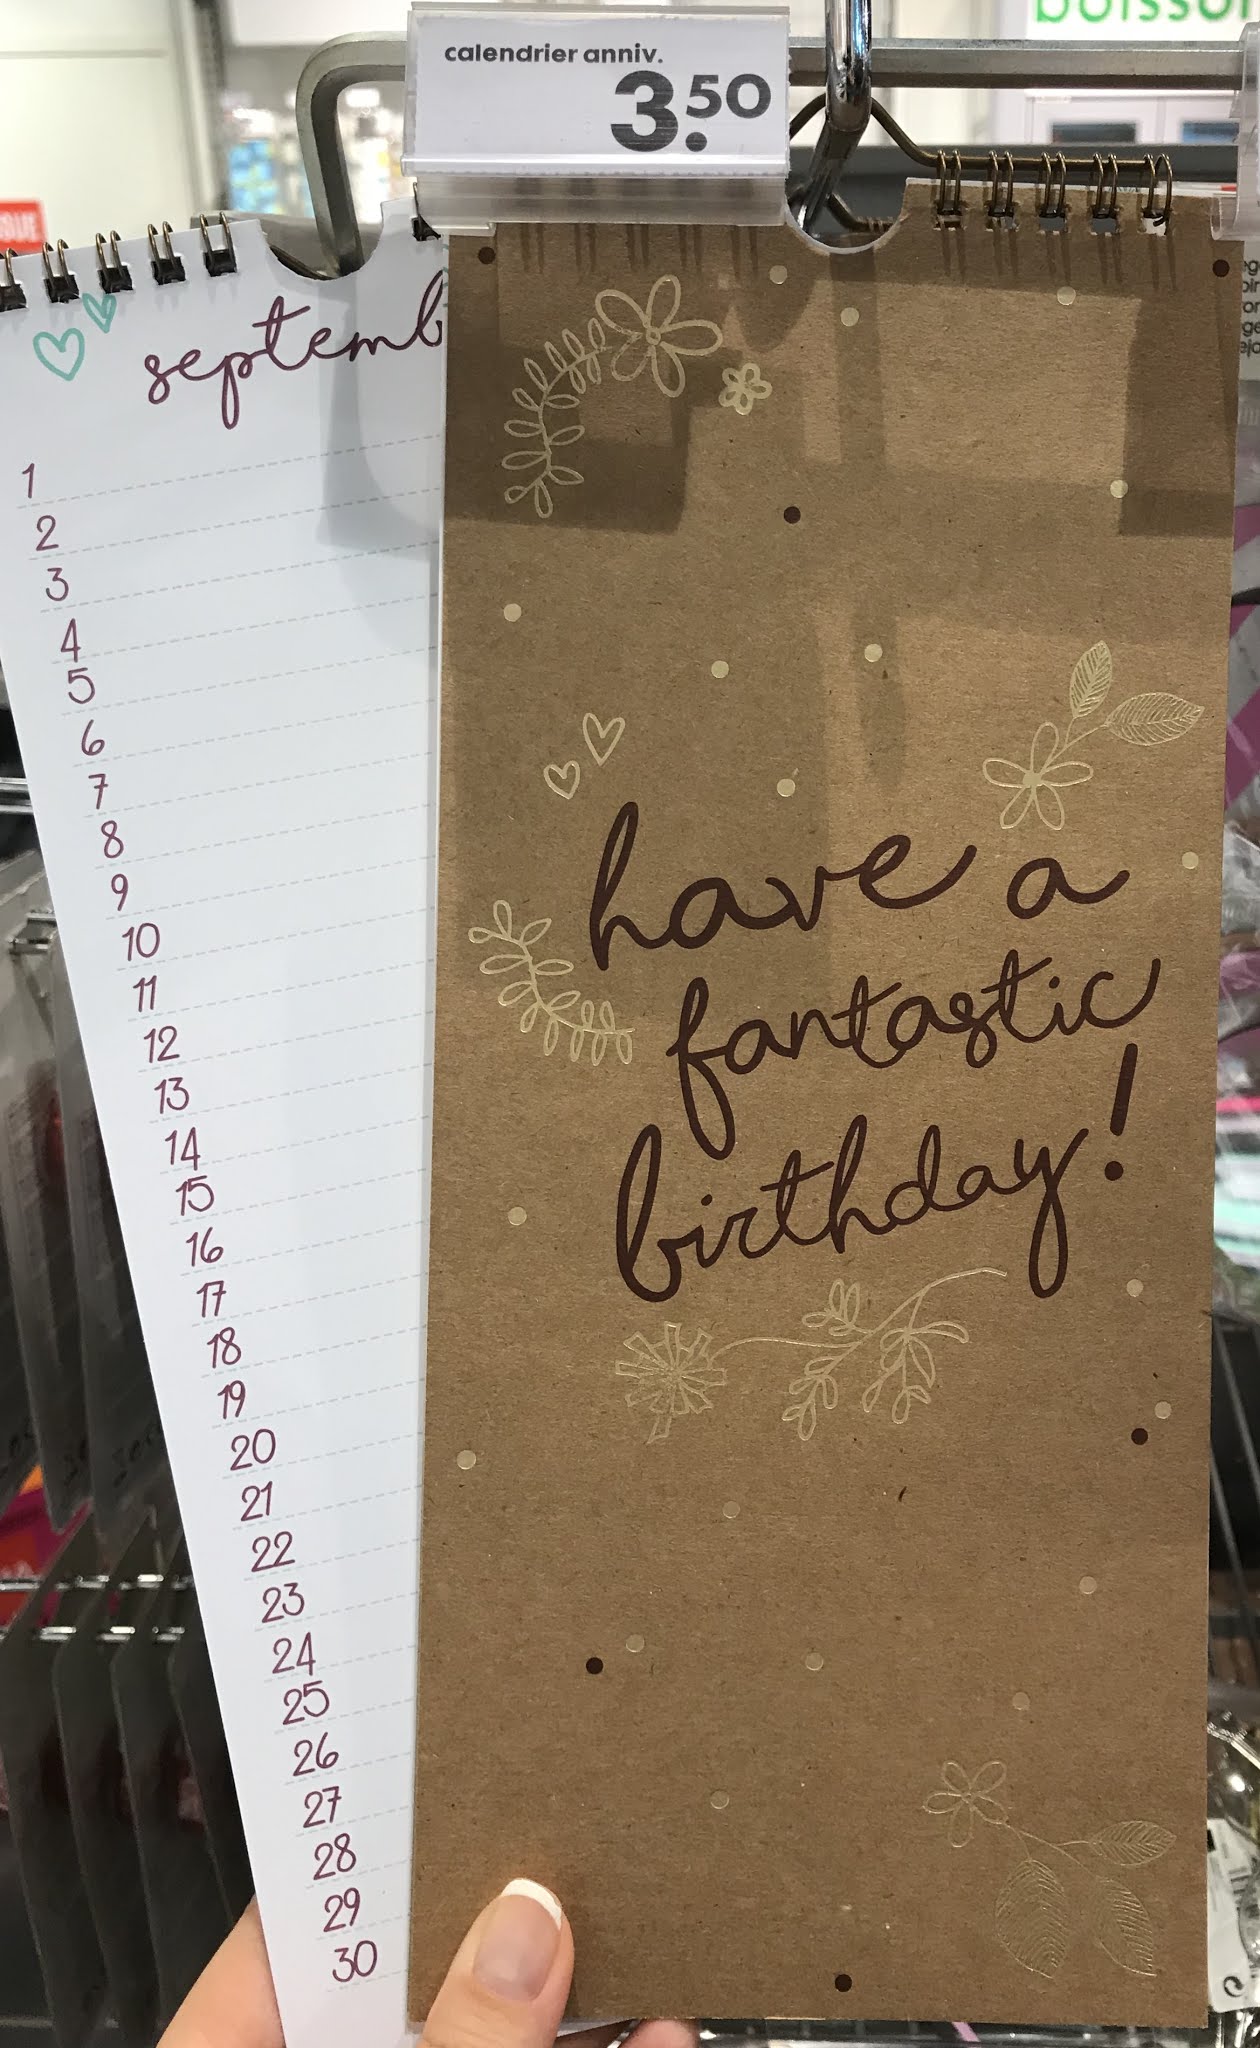 calendrier anniv.
3.50
septemb
1
2
3
4
5
6
7
8
9
10
11
12
13
14
15
16
17
18
19
20
21
22
23
24
25
26
27
28
29
30
have a
fantastic
birthday!